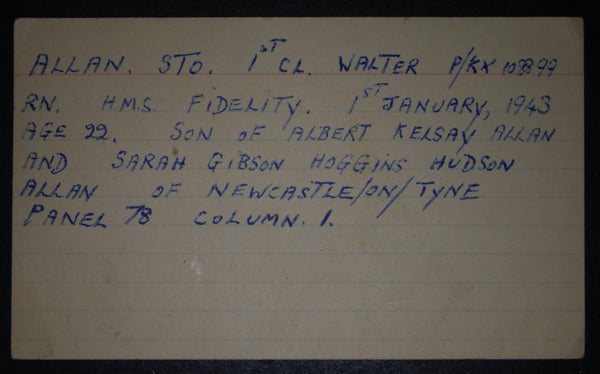 ALLAN. STO. 1ST CL. WALTER P/KX 103899
RN. H.M.S. FIDELITY. 1ST JANUARY, 1943
AGE 22. SON OF ALBERT KELSAY ALLAN
AND SARAH GIBSON HOGGINS HUDSON
ALLAN OF NEWCASTLE/ON/TYNE
PANEL 78 COLUMN. 1.